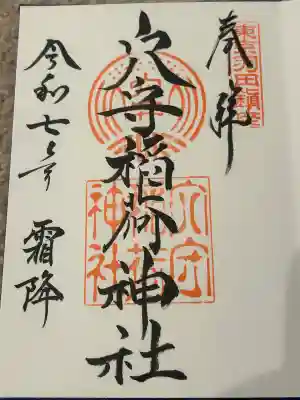 東京羽田鎮座
奉拝
穴守稲荷神社
穴守稲荷神社
令和七年
霜降